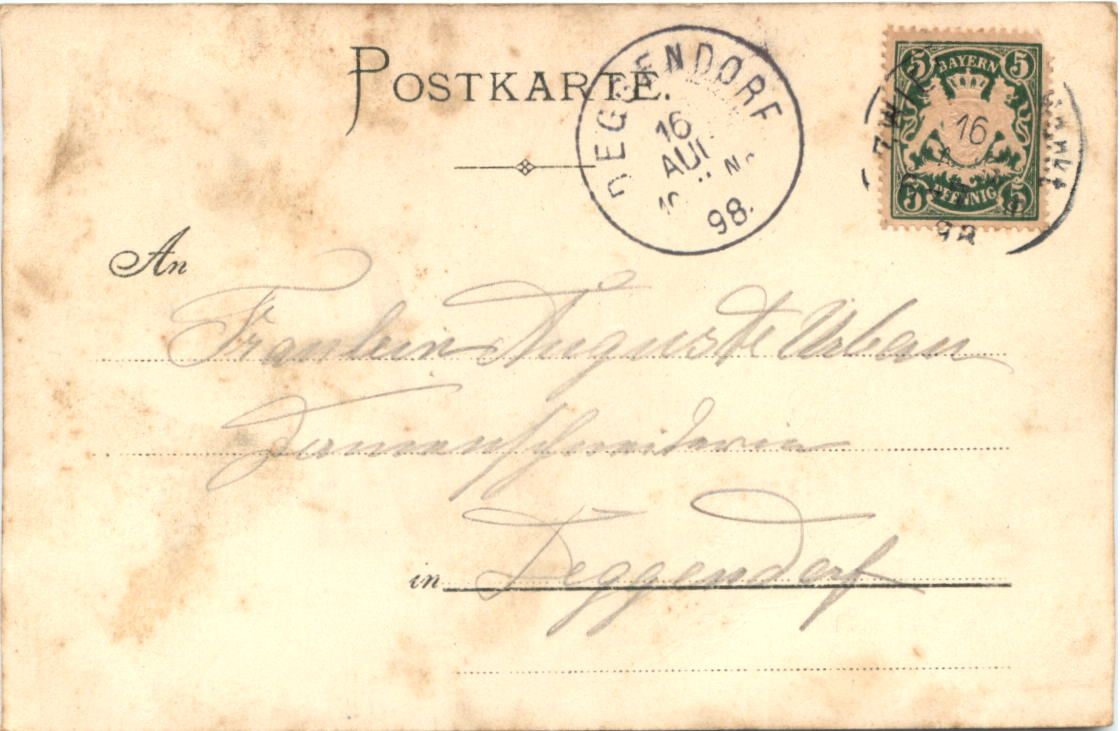 POSTKARTE.
DEGGENDORF
16
AUG
98.
5 BAYERN 5
16
5 PFENNIG 5
98
An
Fraulein Auguste Urban
Damenschneiderin
in Deggendorf